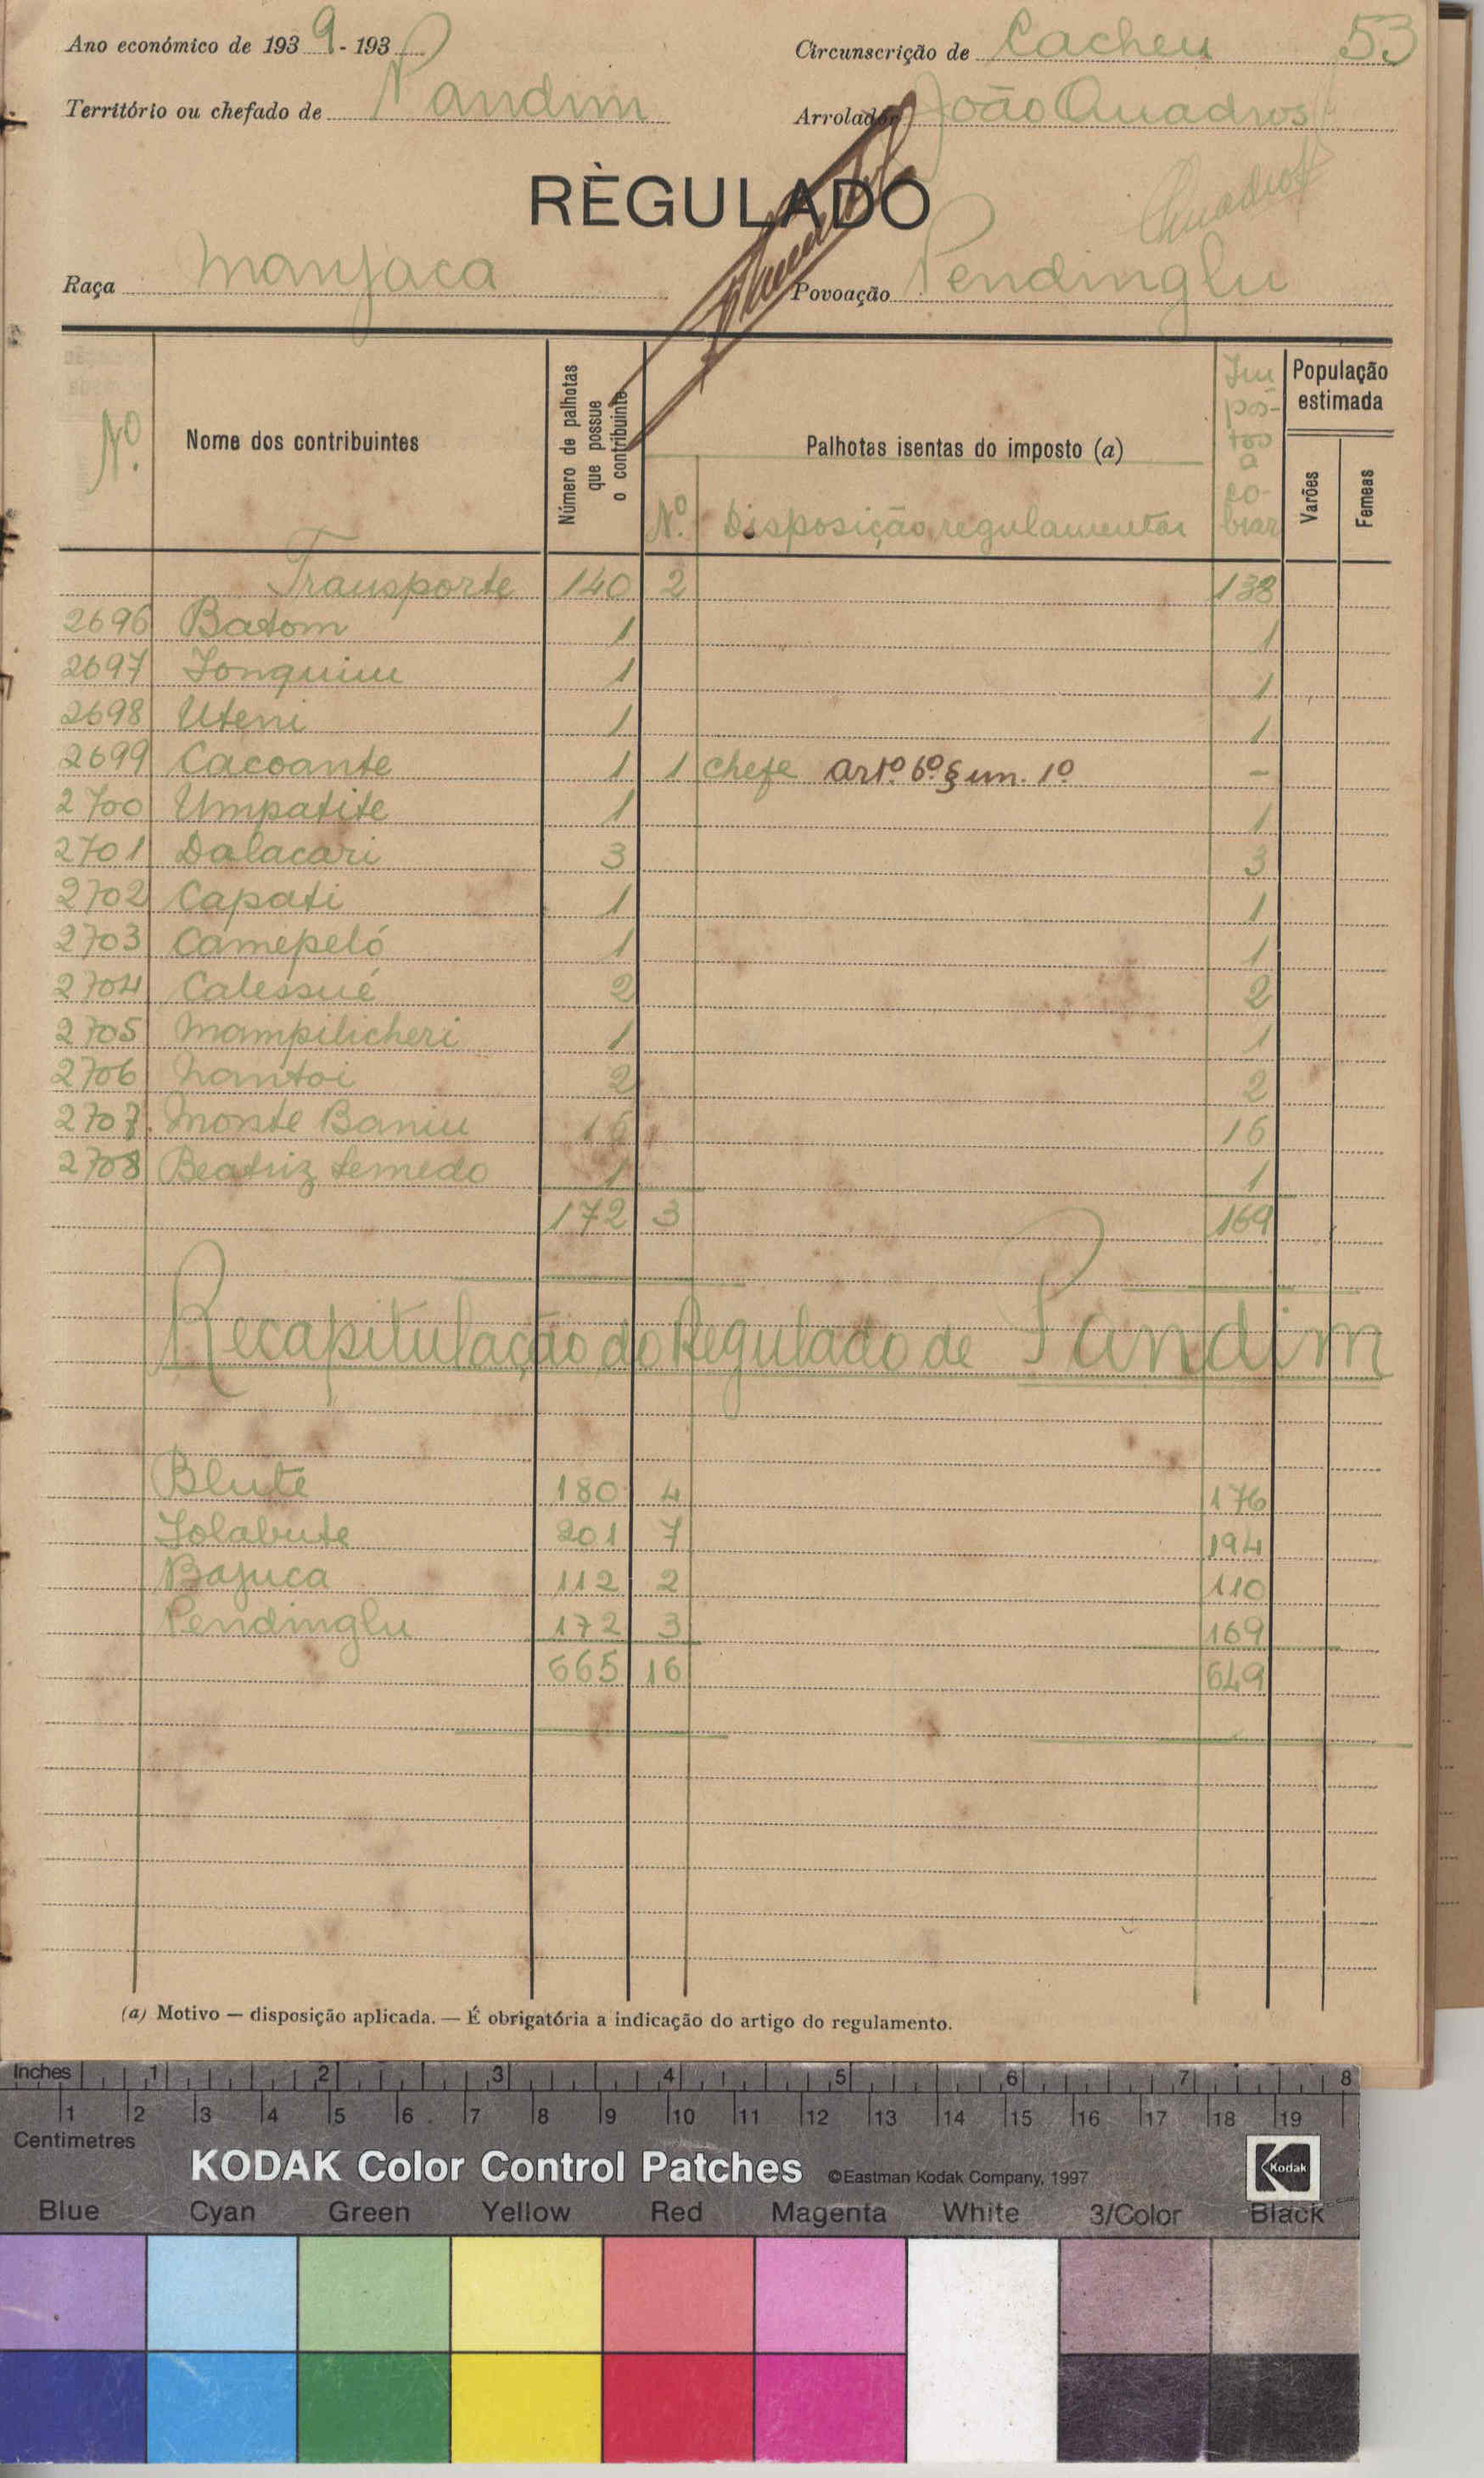 Ano económico de 1939-193
Circunscrição de Cacheu 53
Território ou chefado de Pandim
Arrolador João Quadros
RÈGULADO
Quadros
Raça Manjaca
Povoação Pendinglu
Nº
Nome dos contribuintes
Número de palhotas que possue o contribuinte
Palhotas isentas do imposto (a)
Nº Disposição regulamentar
Impostos a cobrar
População estimada
Varões
Femeas
Transporte 140 2 138
2696 Batom 1 1
2697 Jonquim 1 1
2698 Uteni 1 1
2699 Cacoante 1 1 Chefe artº 6º § un. 1º -
2700 Umpatite 1 1
2701 Dalacari 3 3
2702 Capati 1 1
2703 Camepeló 1 1
2704 Calessué 2 2
2705 Mampilicheri 1 1
2706 Nantoi 2 2
2707 Monte Baniu 16 16
2708 Beatriz Semedo 1 1
172 3 169
Recapitulação do Regulado de Pandim
Blute 180 4 176
Jolabute 201 7 194
Bajuca 112 2 110
Pendinglu 172 3 169
665 16 649
(a) Motivo — disposição aplicada. — É obrigatória a indicação do artigo do regulamento.
Inches 1 2 3 4 5 6 7 8
1 2 3 4 5 6 7 8 9 10 11 12 13 14 15 16 17 18 19
Centimetres
KODAK Color Control Patches ©Eastman Kodak Company, 1997 Kodak
Blue Cyan Green Yellow Red Magenta White 3/Color Black